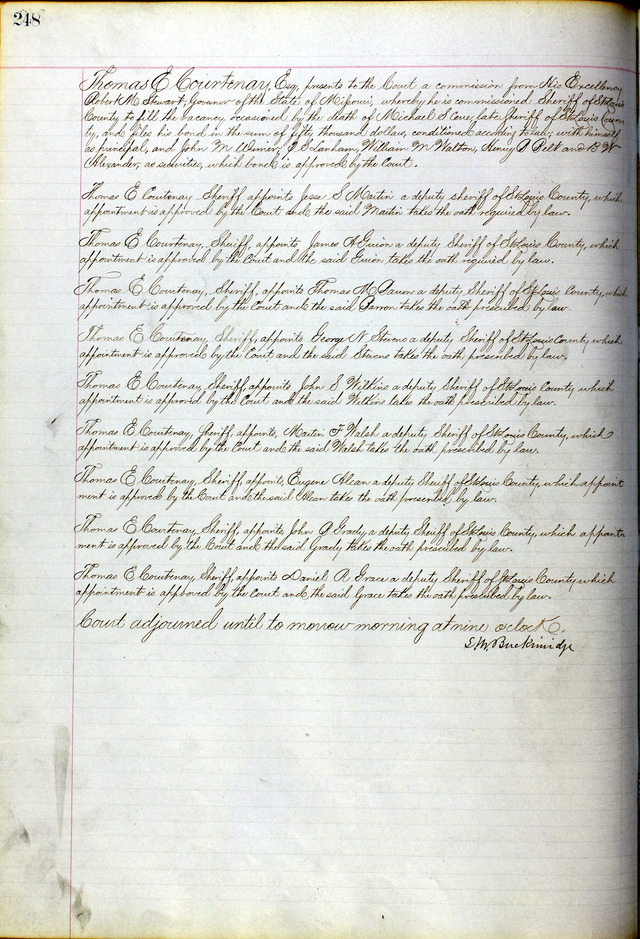 248
Thomas E Courtenay, Esq, presents to the Court a commission from His Excellency
Robert M Stewart, Governor of the State of Missouri, whereby he is commissioned Sheriff of St Louis
County to fill the vacancy occasioned by the death of Michael S Cerre, late Sheriff of St Louis Coun-
ty, and files his bond in the sum of fifty thousand dollars, conditioned according to law, with himself
as principal, and John M Wimer, Lanham, William M Walton, Henry A Belt and B W
Alexander, as securities, which bond is approved by the Court.
Thomas E Courtenay Sheriff, appoints Jesse S Martin a deputy sheriff of St Louis County, which
appointment is approved by the Court and the said Martin takes the oath required by law.
Thomas E Courtenay, Sheriff, appoints, James A Guion a deputy Sheriff of St Louis County, which
appointment is approved by the Court and the said Guion takes the oath required by law.
Thomas E Courtenay, Sheriff, appoints Thomas M a deputy Sheriff of St Louis County, which
appointment is approved by the Court and the said takes the oath prescribed by law.
Thomas E Courtenay, Sheriff, appoints George N Stevens a deputy Sheriff of St Louis County which
appointment is approved by the Court and the said Stevens takes the oath prescribed by law.
Thomas E Courtenay, Sheriff, appoints John S Wilkins a deputy Sheriff of St Louis County which
appointment is approved by the Court and the said Wilkins takes the oath prescribed by law.
Thomas E Courtenay, Sheriff, appoints, Martin F Walsh a deputy Sheriff of St Louis County, which
appointment is approved by the Court and the said Walsh takes the oath prescribed by law.
Thomas E Courtenay, Sheriff, appoints Eugene a deputy Sheriff of St Louis County, which appoint
ment is approved by the Court and the said takes the oath prescribed by law.
Thomas E Courtenay Sheriff, appoints, John A Grady a deputy Sheriff of St Louis County, which appoint
ment is approved by the Court and the said Grady takes the oath prescribed by law.
Thomas E Courtenay, Sheriff, appoints Daniel R Grace a deputy Sheriff of St Louis County which
appointment is approved by the Court and the said Grace takes the oath prescribed by law.
Court adjourned until to morrow morning at nine o'clock.
S. M. Breckinridge